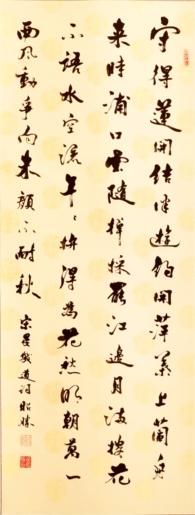 守得蓮開結伴遊約開萍葉上蘭舟
来時浦口雲隨棹採罷江邊月滿樓花
不語水空流年々拚得為花愁明朝萬一
西風動爭向朱顏不耐秋 宋晏幾道詩